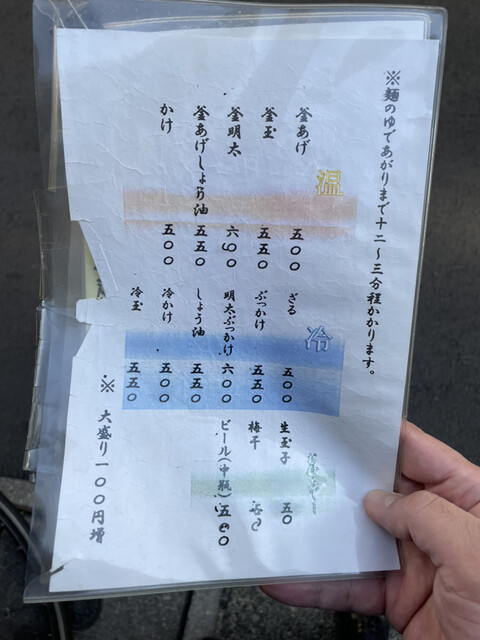 ※麺のゆであがりまで十二～三分程かかります。
温
釜あげ 五〇〇
釜玉 五五〇
釜明太 六〇〇
釜あげしょう油 五五〇
かけ 五〇〇
冷
ざる 五〇〇
ぶっかけ 五五〇
明太ぶっかけ 六〇〇
しょう油 五五〇
冷かけ 五〇〇
冷玉 五五〇
生玉子 五〇
梅干
ビール(中瓶) 五〇〇
※ 大盛り一〇〇円増